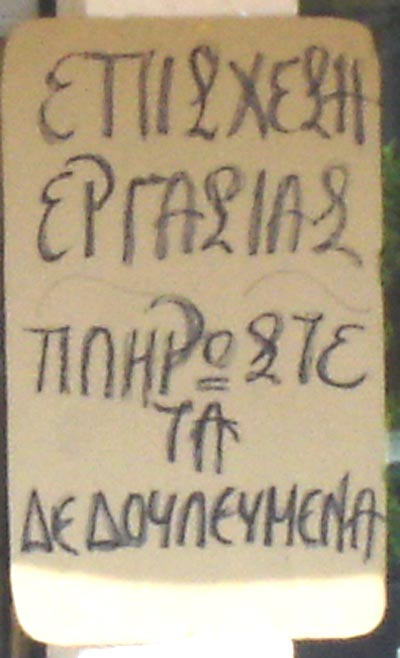 ΕΠΙΣΧΕΣΗ
ΕΡΓΑΣΙΑΣ
ΠΛΗΡΩΣΤΕ
ΤΑ
ΔΕΔΟΥΛΕΥΜΕΝΑ